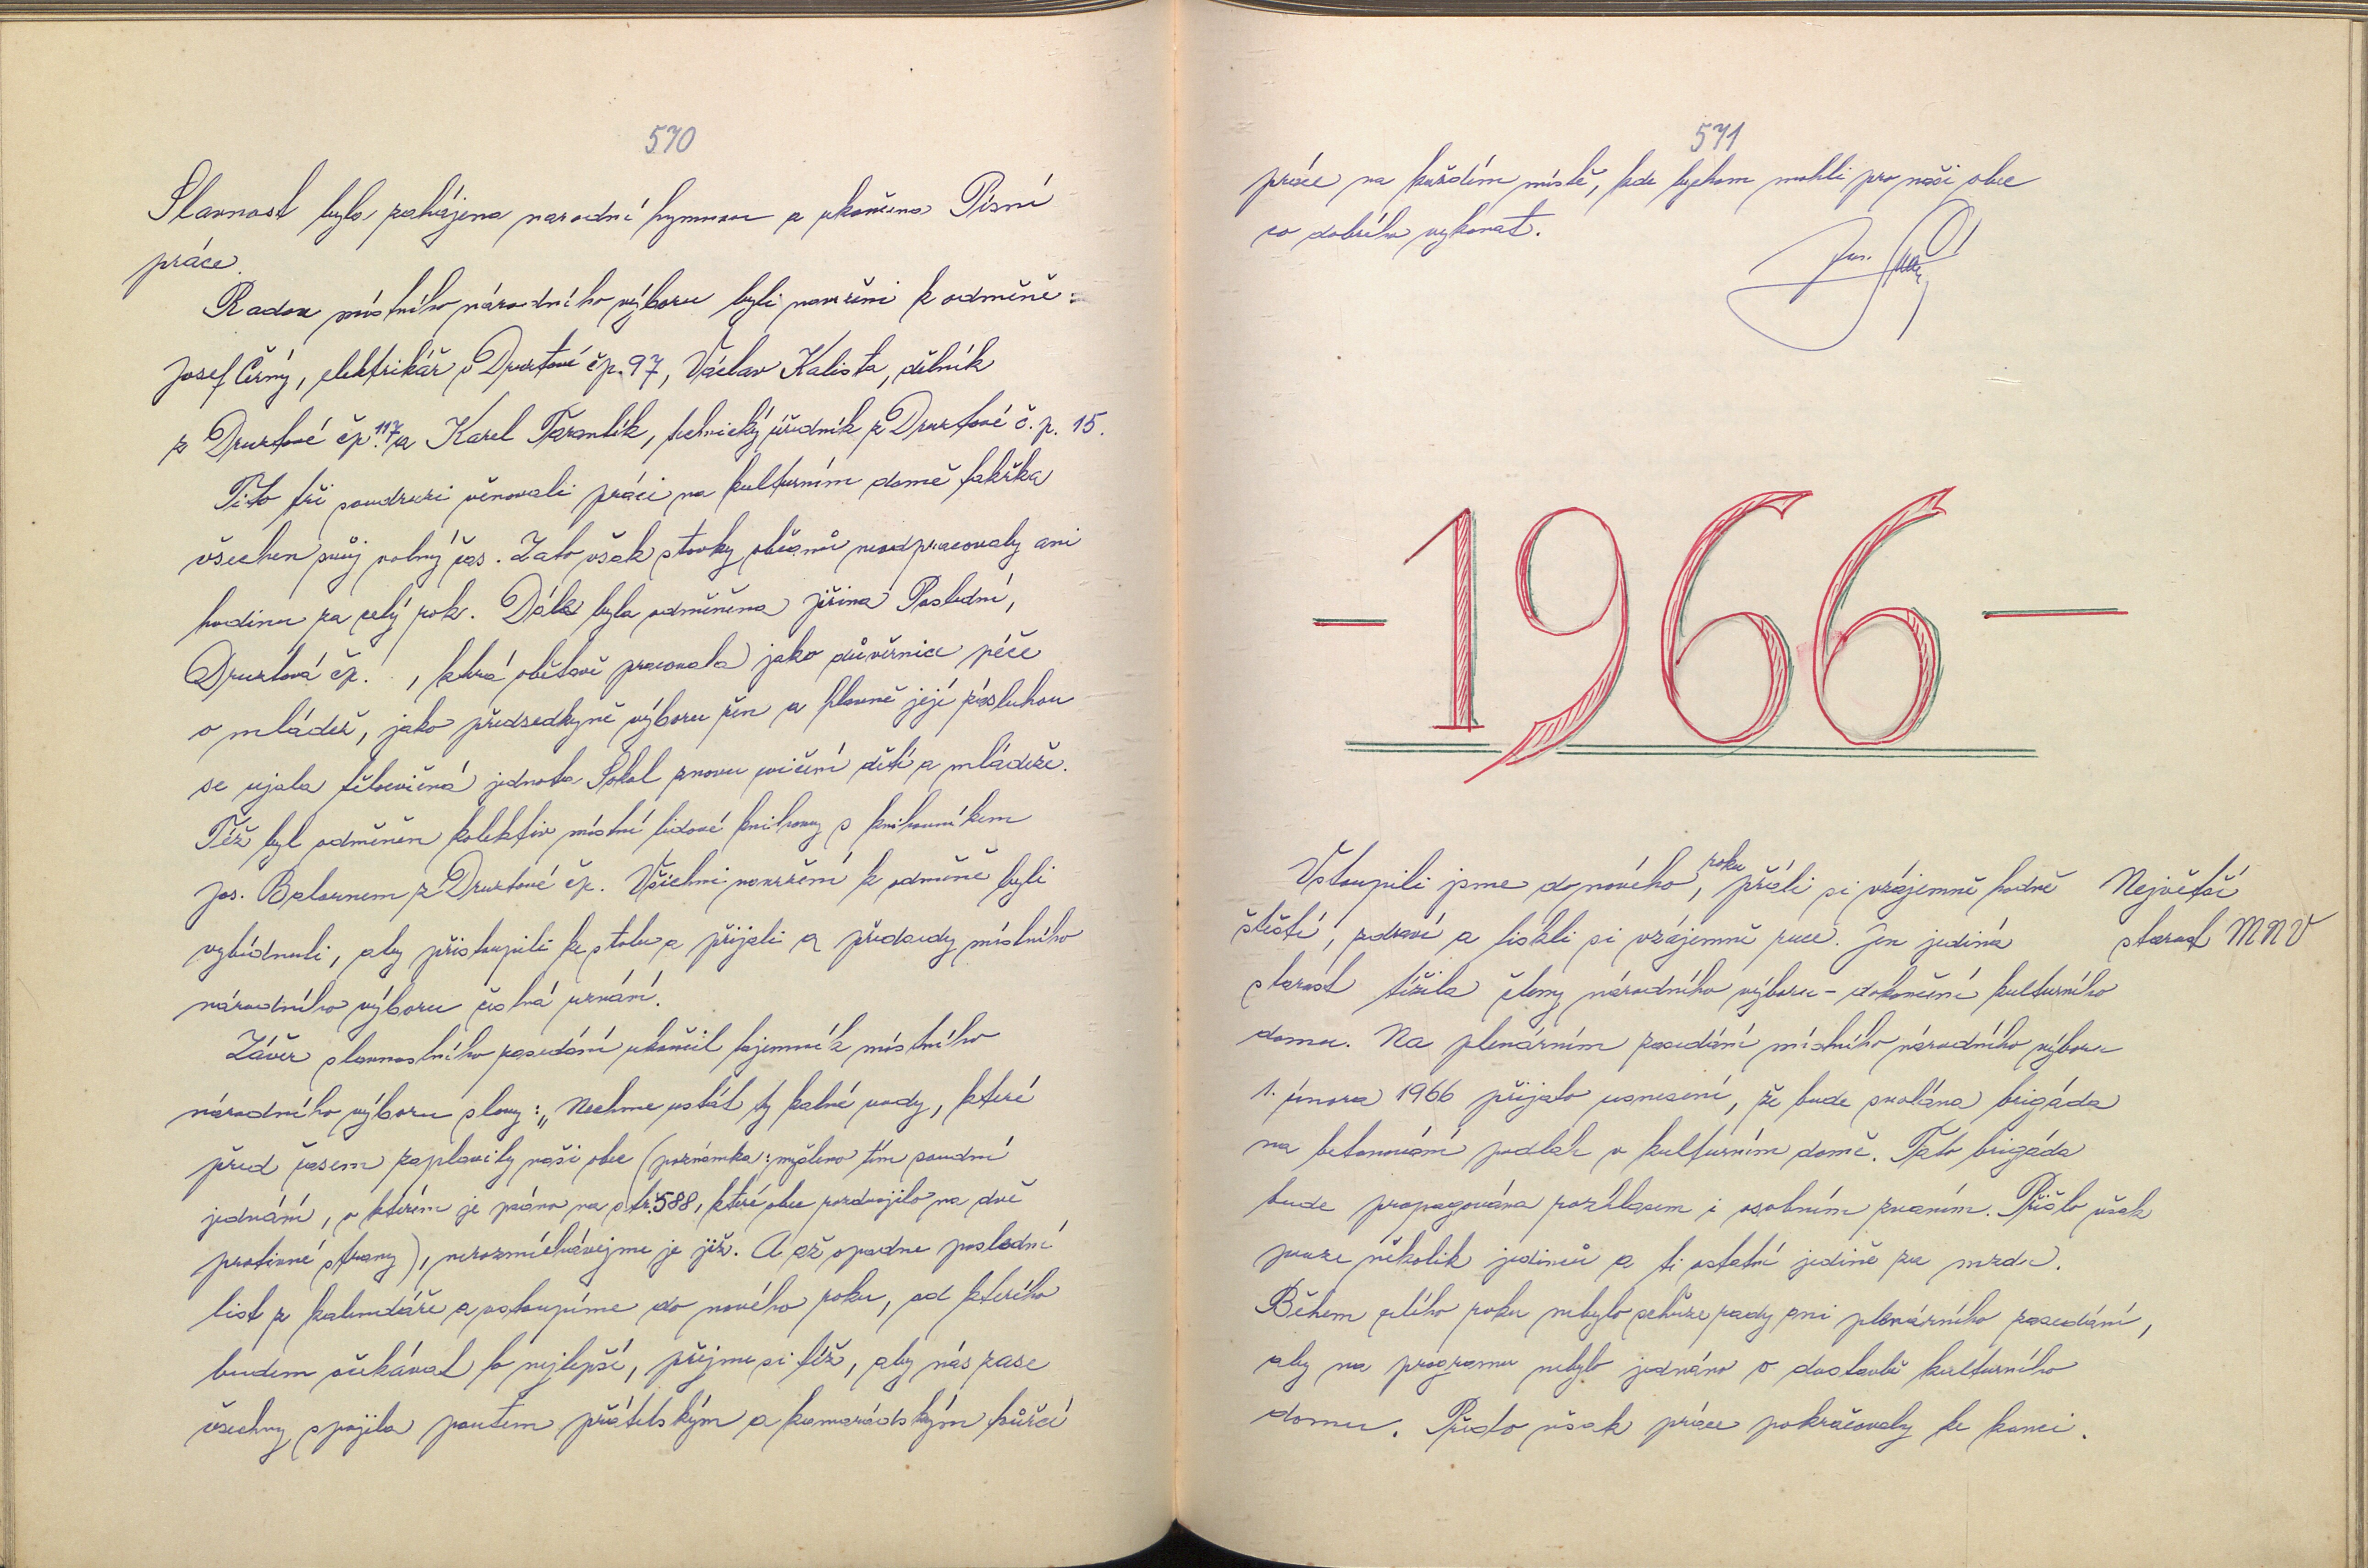 570
Slavnost byla zahájena narodní hymnou a ukončena Písní
práce.
Radou místního národního výboru byli navrženi k odměně:
Josef Černý, elektrikář v Druztové čp. 97, Václav Kalista, dělník
z Druztové čp. 117 a Karel Taranlík, technický úředník z Druztové č. p. 15.
Tito tři soudruzi věnovali práci na kulturním domě takřka
všechen svůj volný čas. Zato však stovky občanů neodpracovaly ani
hodinu za celý rok. Dále byla odměněna Jiřina Poslední,
Druztová čp. , která obětavě pracovala jako důvěrnice péče
o mládež, jako předsedkyně výboru žen a hlavně její zásluhou
se ujala tělocvičná jednota Sokol znovu cvičení dětí a mládeže.
Též byl odměněn kolektiv místní lidové knihovny s knihovníkem
Jos. Balounem z Druztové čp. Všichni navržení k odměně byli
vybídnuti, aby přistoupili ke stolu a přijali z předsedy místního
národního výboru čestná uznání.
Závěr slavnostního zasedání ukončil tajemník místního
národního výboru slovy: „Nechme ustát ty kalné vody, které
před časem zaplavily naši obec (poznámka: myšleno tím soudní
jednání, o kterém je psáno na str. 588, které obec rozdvojilo na dvě
protivné strany), nerozmíchávejme je již. A až opadne poslední
list z kalendáře a vstoupíme do nového roku, od kterého
budem očekávat to nejlepší, přejme si též, aby nás zase
všechny spojila poutem přátelským a kamarádským tvůrčí
571
práce na každém místě, kde bychom mohli pro naši obec
co dobrého vykonat.
Jos.
-1966-
Vstoupili jsme do nového roku, přáli si vzájemně hodně
Největší
štěstí, zdraví a tiskli si vzájemně ruce. Jen jediná
starost MNV
starost tížila členy národního výboru - dokončení kulturního
domu. Na plenárním zasedání místního národního výboru
1. února 1966 přijato usnesení, že bude svolána brigáda
na betonování podlah v kulturním domě. Tato brigáda
bude propagována rozhlasem i osobním zvaním. Přišlo však
pouze několik jedinců a ti ostatní jedině za mzdu.
Během celého roku nebylo schůze rady ani plenárního zasedání,
aby na programu nebylo jednáno o dostavbě kulturního
domu. Přesto však práce pokračovaly ke konci.